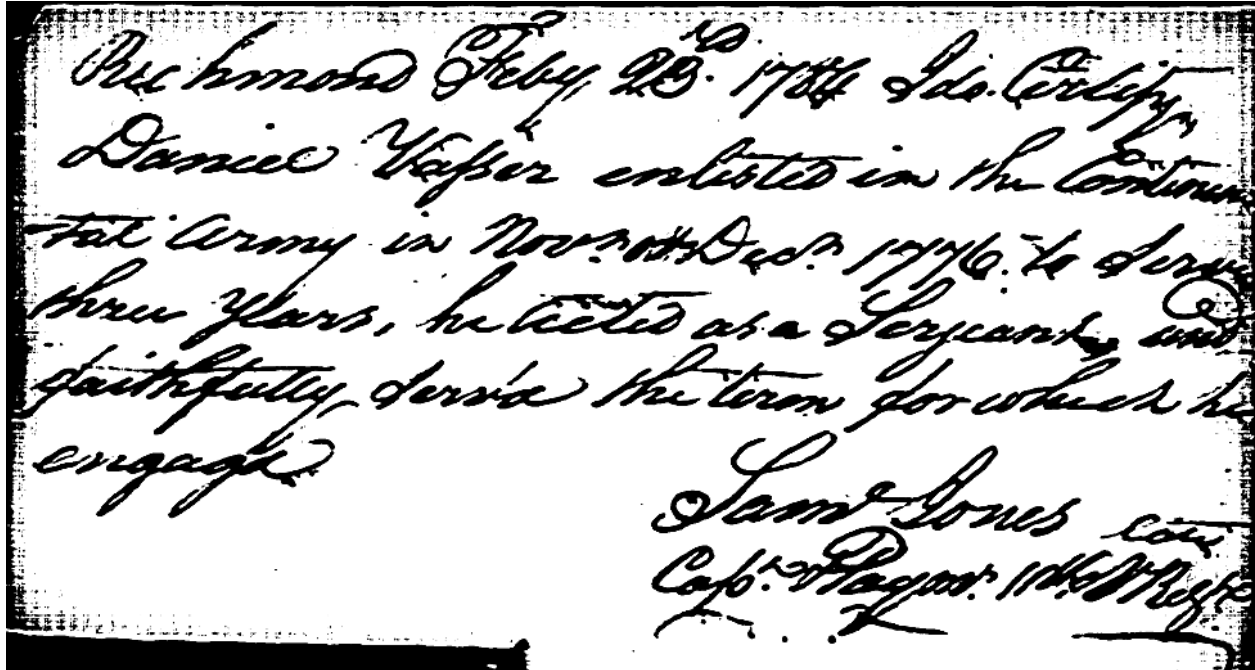 Richmond Feby 23rd. 1784 I do. Certify,
Daniel Vasser enlisted in the Continen
-tal Army in Novr. or Decr. 1776. to Serve
three Years, he Acted as a Serjeant, and
faithfully Serv'd the term for which he
engag'd.
Saml Jones
Capt. & Paymr. 11th V Regt